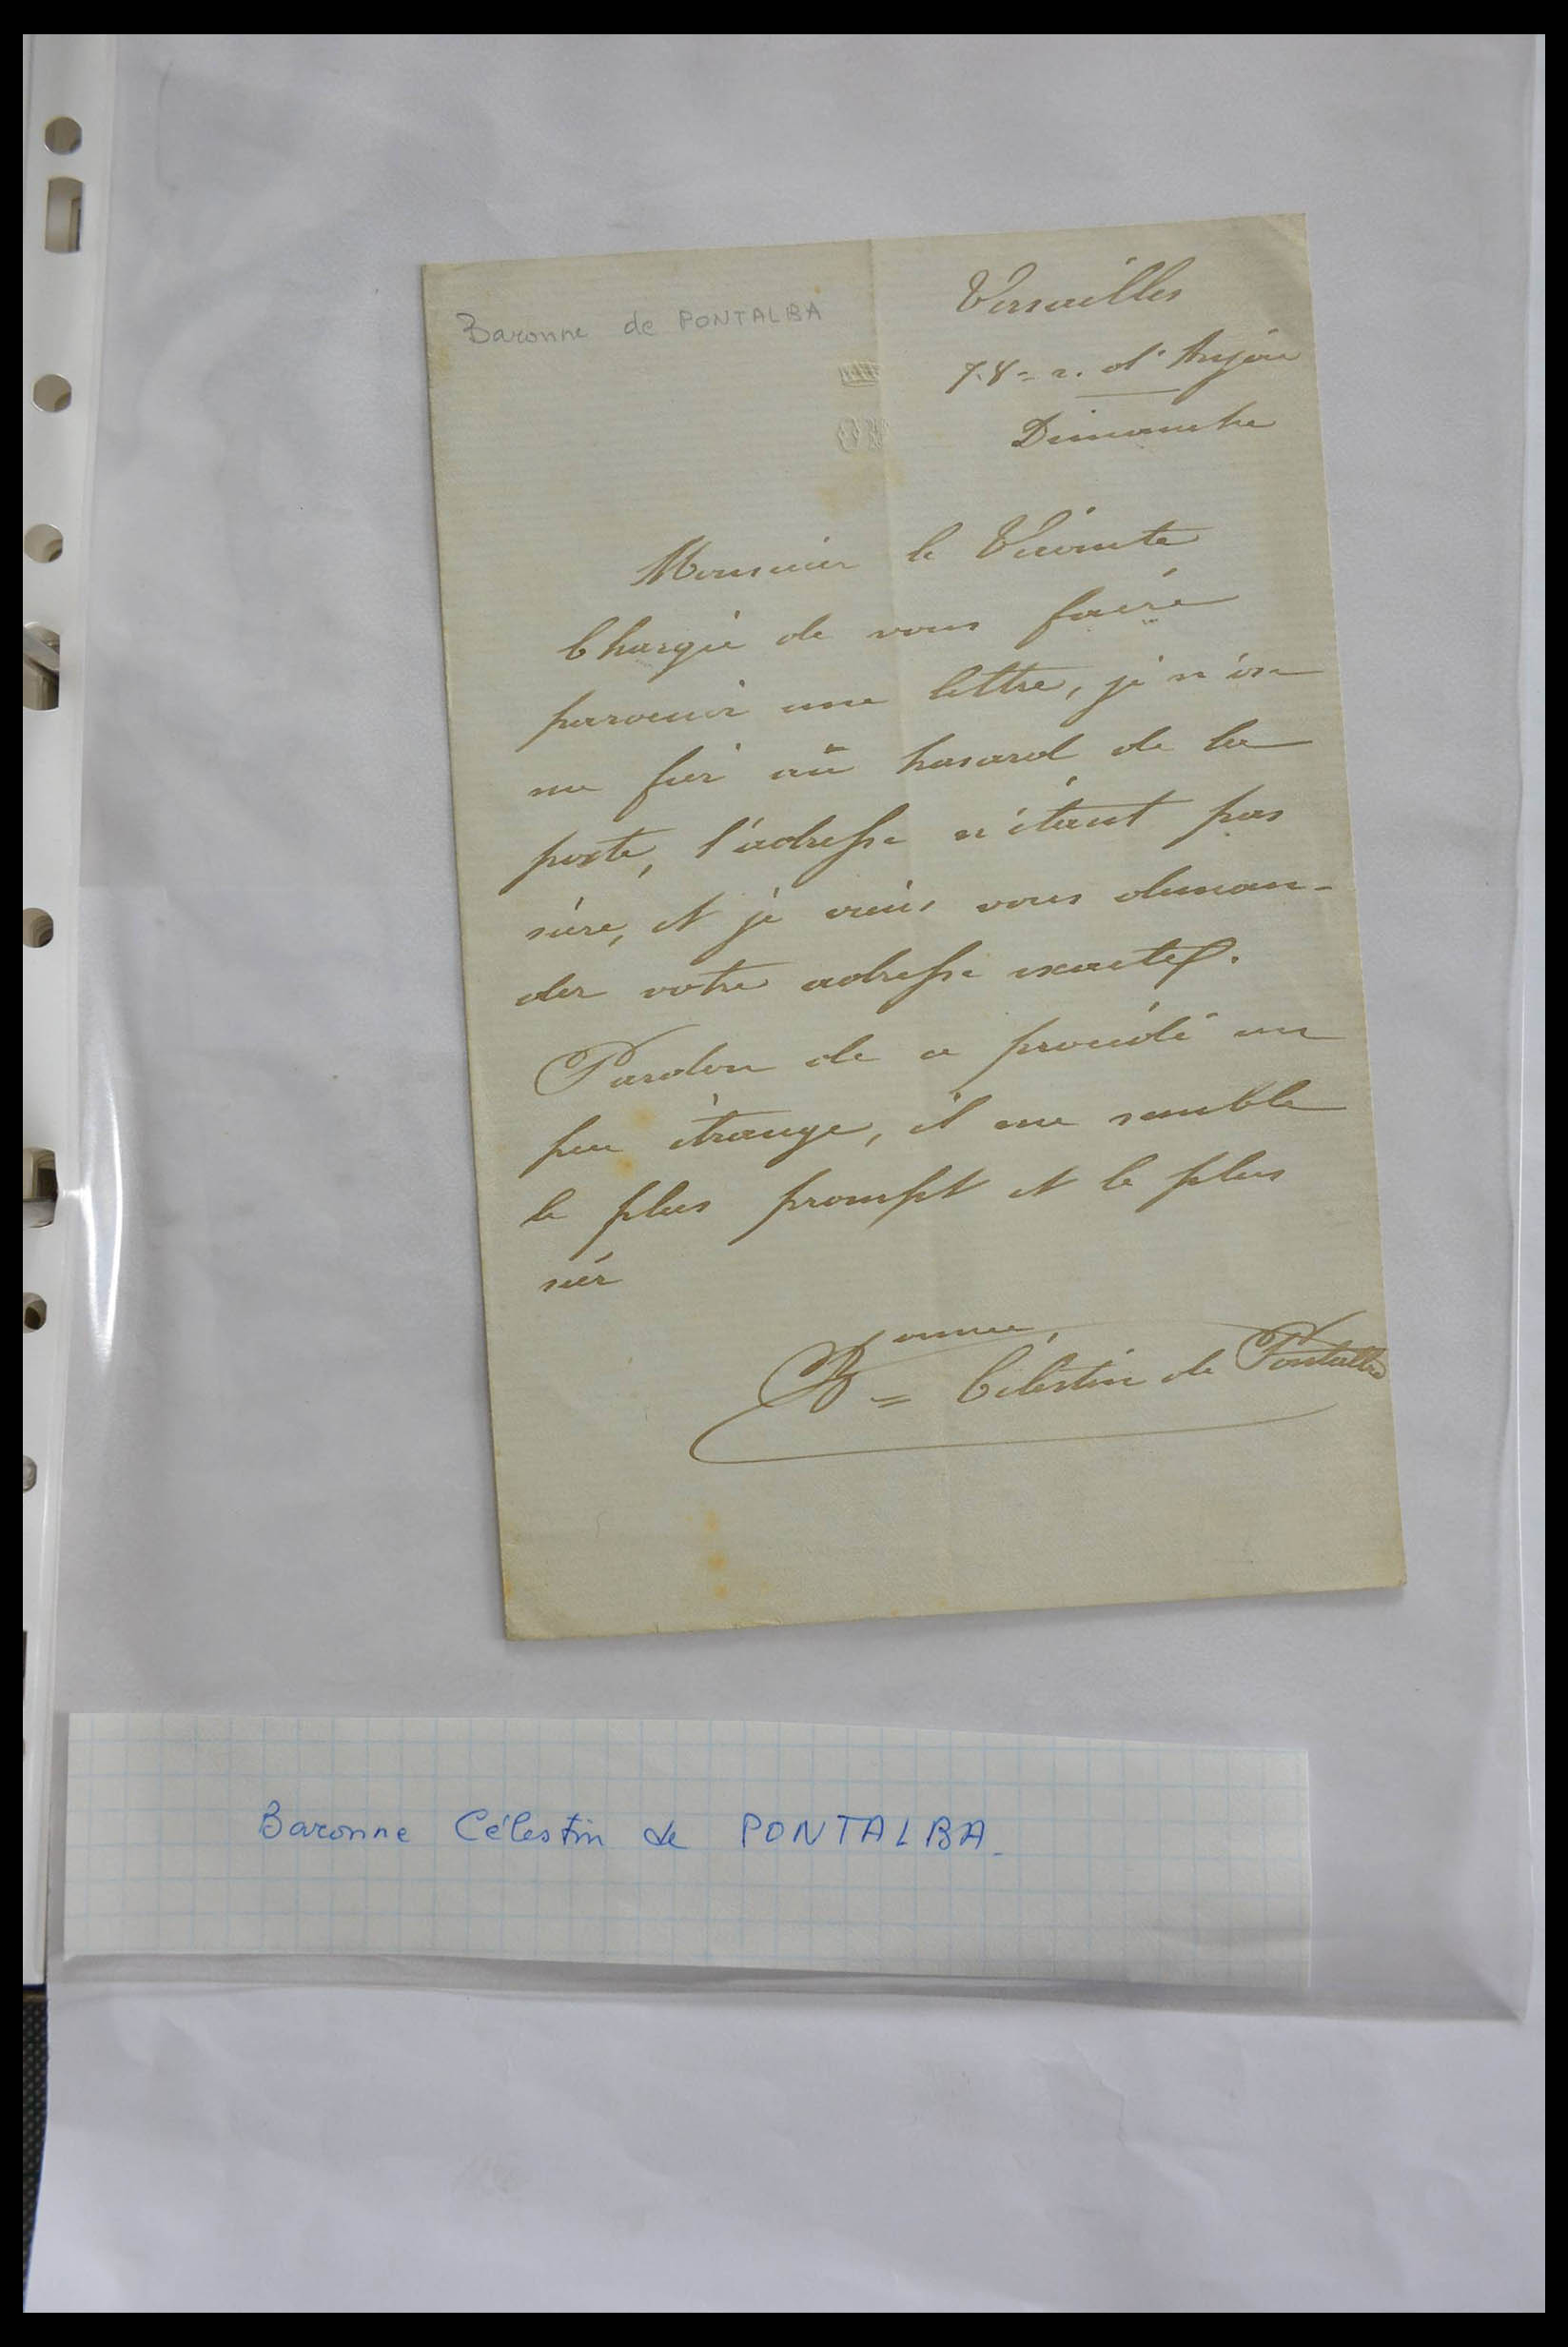 Baronne de PONTALBA
Versailles
78 = r. d'Anjou
Dimanche
Monsieur le Vicomte
Chargée de vous faire
parvenir une lettre, je n'ose
me fier au hasard de la
poste, l'adresse n'étant pas
sûre, et je viens vous deman-
der votre adresse exacte.
Pardon de ce procédé un
peu étrange, il me semble
le plus prompt et le plus
sûr
Bonne = Célestin de Pontalba
Baronne Célestin de PONTALBA